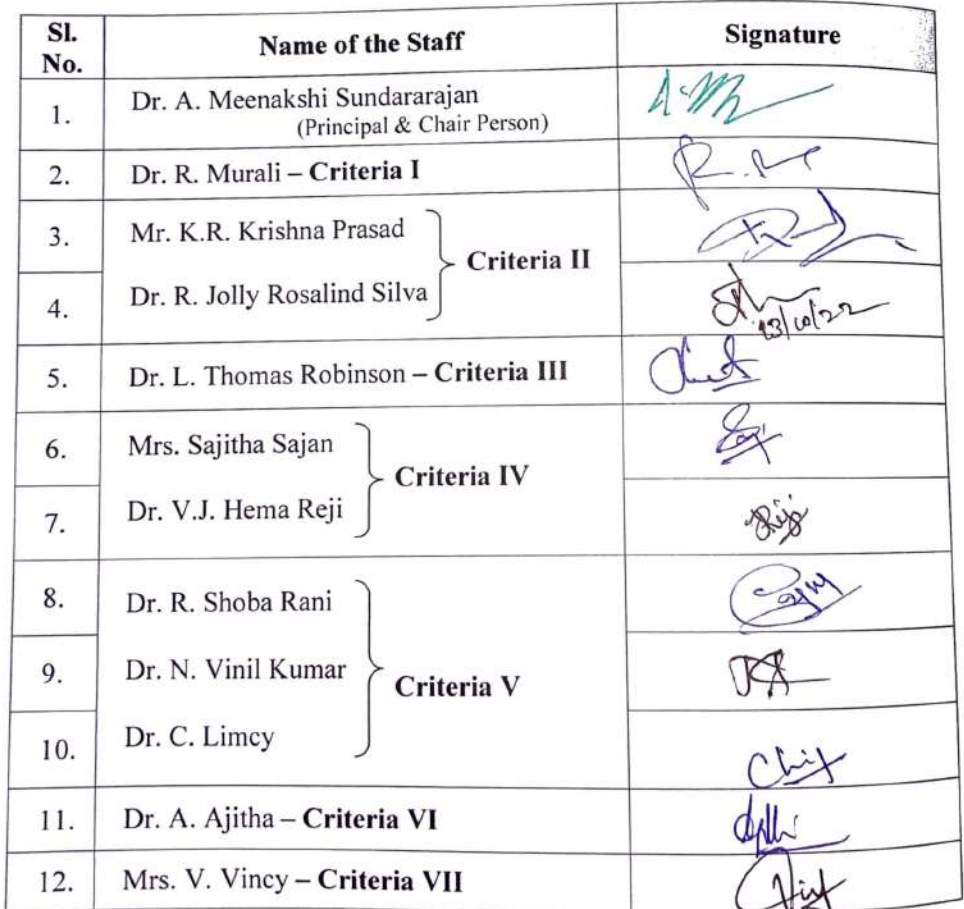 Sl. No. Name of the Staff Signature
1. Dr. A. Meenakshi Sundararajan
(Principal & Chair Person)
2. Dr. R. Murali – Criteria I
3. Mr. K.R. Krishna Prasad
Criteria II
4. Dr. R. Jolly Rosalind Silva
13/10/22
5. Dr. L. Thomas Robinson – Criteria III
6. Mrs. Sajitha Sajan
Criteria IV
7. Dr. V.J. Hema Reji
8. Dr. R. Shoba Rani
9. Dr. N. Vinil Kumar
Criteria V
10. Dr. C. Limcy
11. Dr. A. Ajitha – Criteria VI
12. Mrs. V. Vincy – Criteria VII